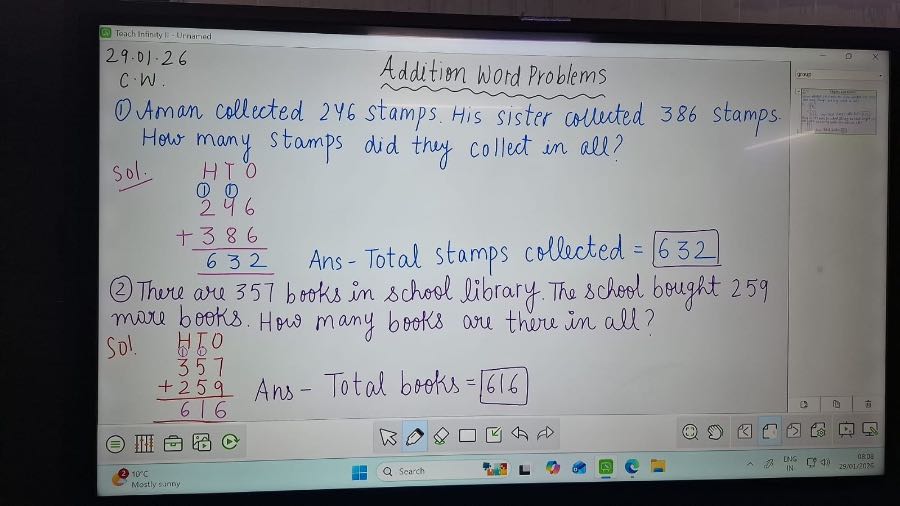 Teach Infinity - Unnamed
29.01.26
C.W.
Addition Word Problems
① Aman collected 246 stamps. His sister collected 386 stamps.
How many stamps did they collect in all?
Sol.
H T O
① ①
2 4 6
+ 3 8 6
6 3 2
Ans - Total stamps collected = 632
② There are 357 books in school library. The school bought 259
more books. How many books are there in all?
Sol.
H T O
① ①
3 5 7
+ 2 5 9
6 1 6
Ans - Total books = 616
group
2
10°C
Mostly sunny
Search
ENG
IN
08:08
29/01/2026